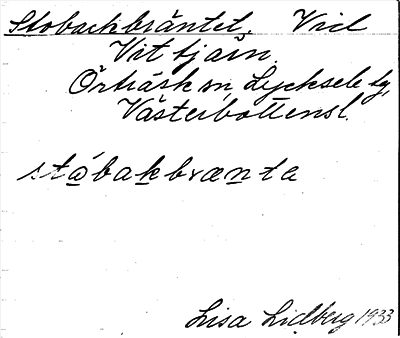 Stobackbräntet, Vid
Vittjärn.
Örträsk sn, Lycksele tg,
Västerbottensl.
stabakbrænta
Lisa Lidberg 1933